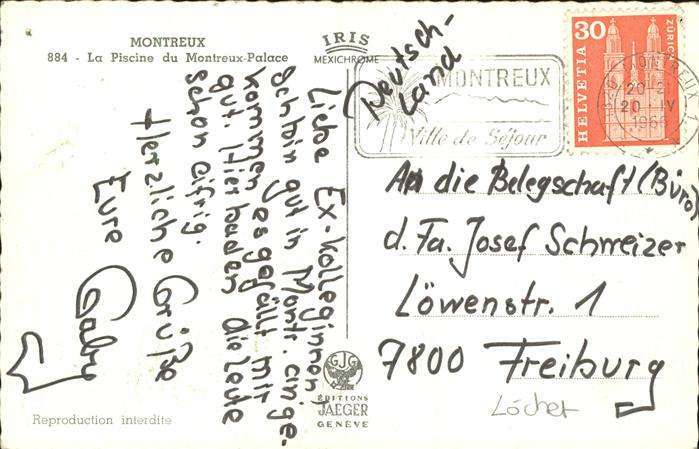 MONTREUX
884 - La Piscine du Montreux-Palace
IRIS
MEXICHROME
Deutsch-
land
MONTREUX
Ville de Séjour
30
HELVETIA
ZÜRICH
20 IV
Liebe Ex-Kolleginnen,
ich bin gut in Montr. einge-
kommen, es gefällt mir
gut. Hier baden die Leute
schon eifrig.
Herzliche Grüße
Eure Gaby
An die Belegschaft (Büro)
d. Fa. Josef Schweizer
Löwenstr. 1
7800 Freiburg
GJG
EDITIONS
JAEGER
GENÈVE
Reproduction interdite